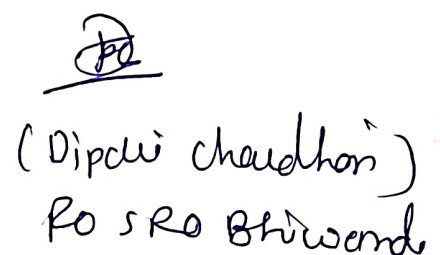 (Dipali Chaudhari)
RO SRO Bhiwandi